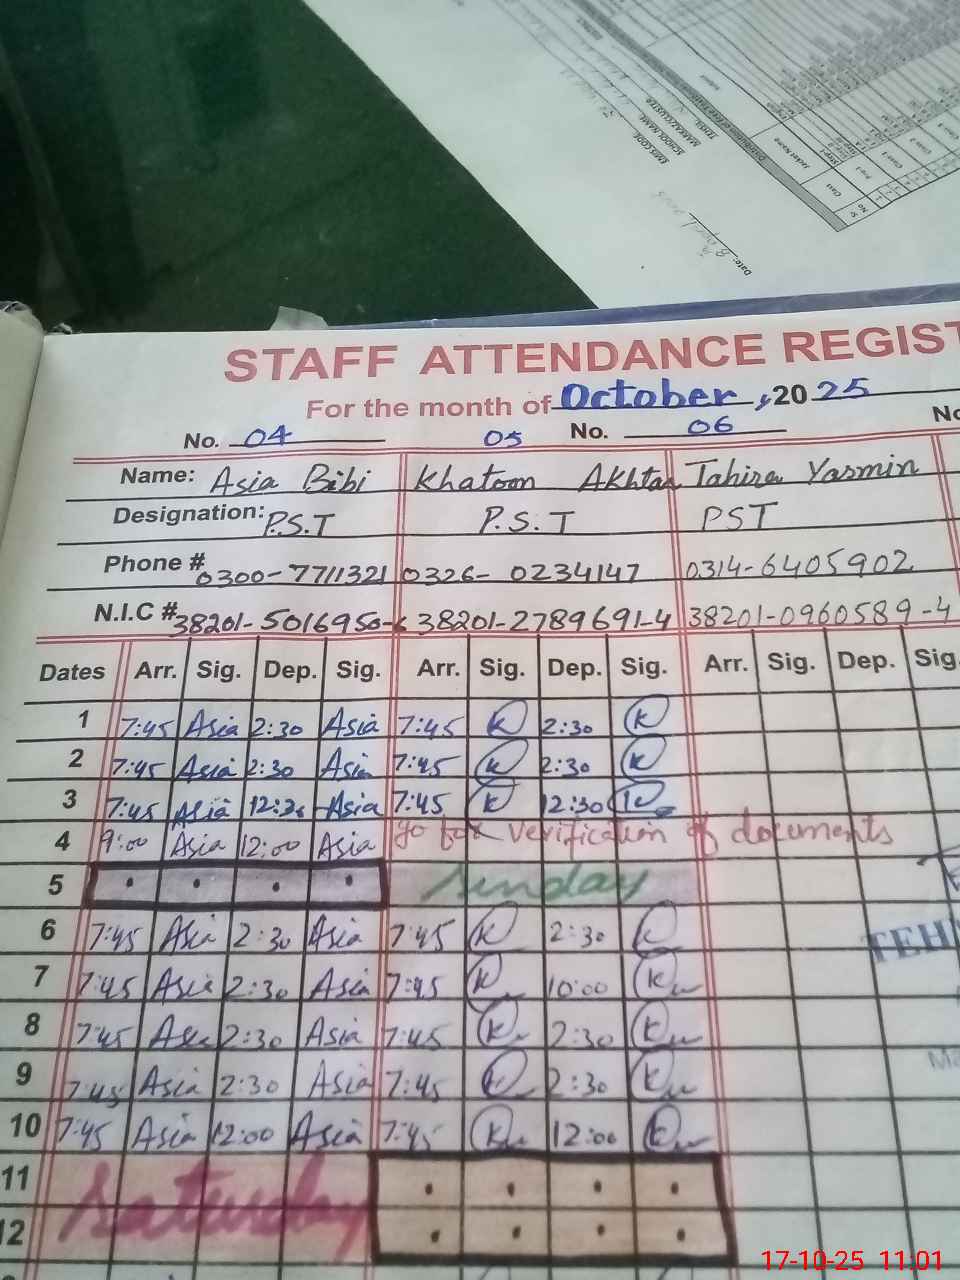 Distribution of Free Textbooks
EMIS CODE:
SCHOOL NAME:
MARKAZ/CLUSTER
TEHSIL
Sr No
Class
Date:
STAFF ATTENDANCE REGIST
For the month of October, 2025
No. 04 05 No. 06 No
Name: Asia Bibi Khatoon Akhtar Tahira Yasmin
Designation: P.S.T P.S.T PST
Phone # 0300-7711321 0326-0234147 0314-6405902
N.I.C # 38201-5016950-6 38201-2789691-4 38201-0960589-4
Dates Arr. Sig. Dep. Sig. Arr. Sig. Dep. Sig. Arr. Sig. Dep. Sig.
1 7:45 Asia 2:30 Asia 7:45 K 2:30 K
2 7:45 Asia 2:30 Asia 7:45 K 2:30 K
3 7:45 Asia 12:30 Asia 7:45 K 12:30 K
4 9:00 Asia 12:00 Asia go for verification of documents
5 Sunday
6 7:45 Asia 2:30 Asia 7:45 K 2:30 K
TEH
7 7:45 Asia 2:30 Asia 7:45 K 10:00 K
8 7:45 Asia 2:30 Asia 7:45 K 2:30 K
Ma
9 7:45 Asia 2:30 Asia 7:45 K 2:30 K
10 7:45 Asia 12:00 Asia 7:45 K 12:00 K
11
Saturday
12
17-10-25 11:01